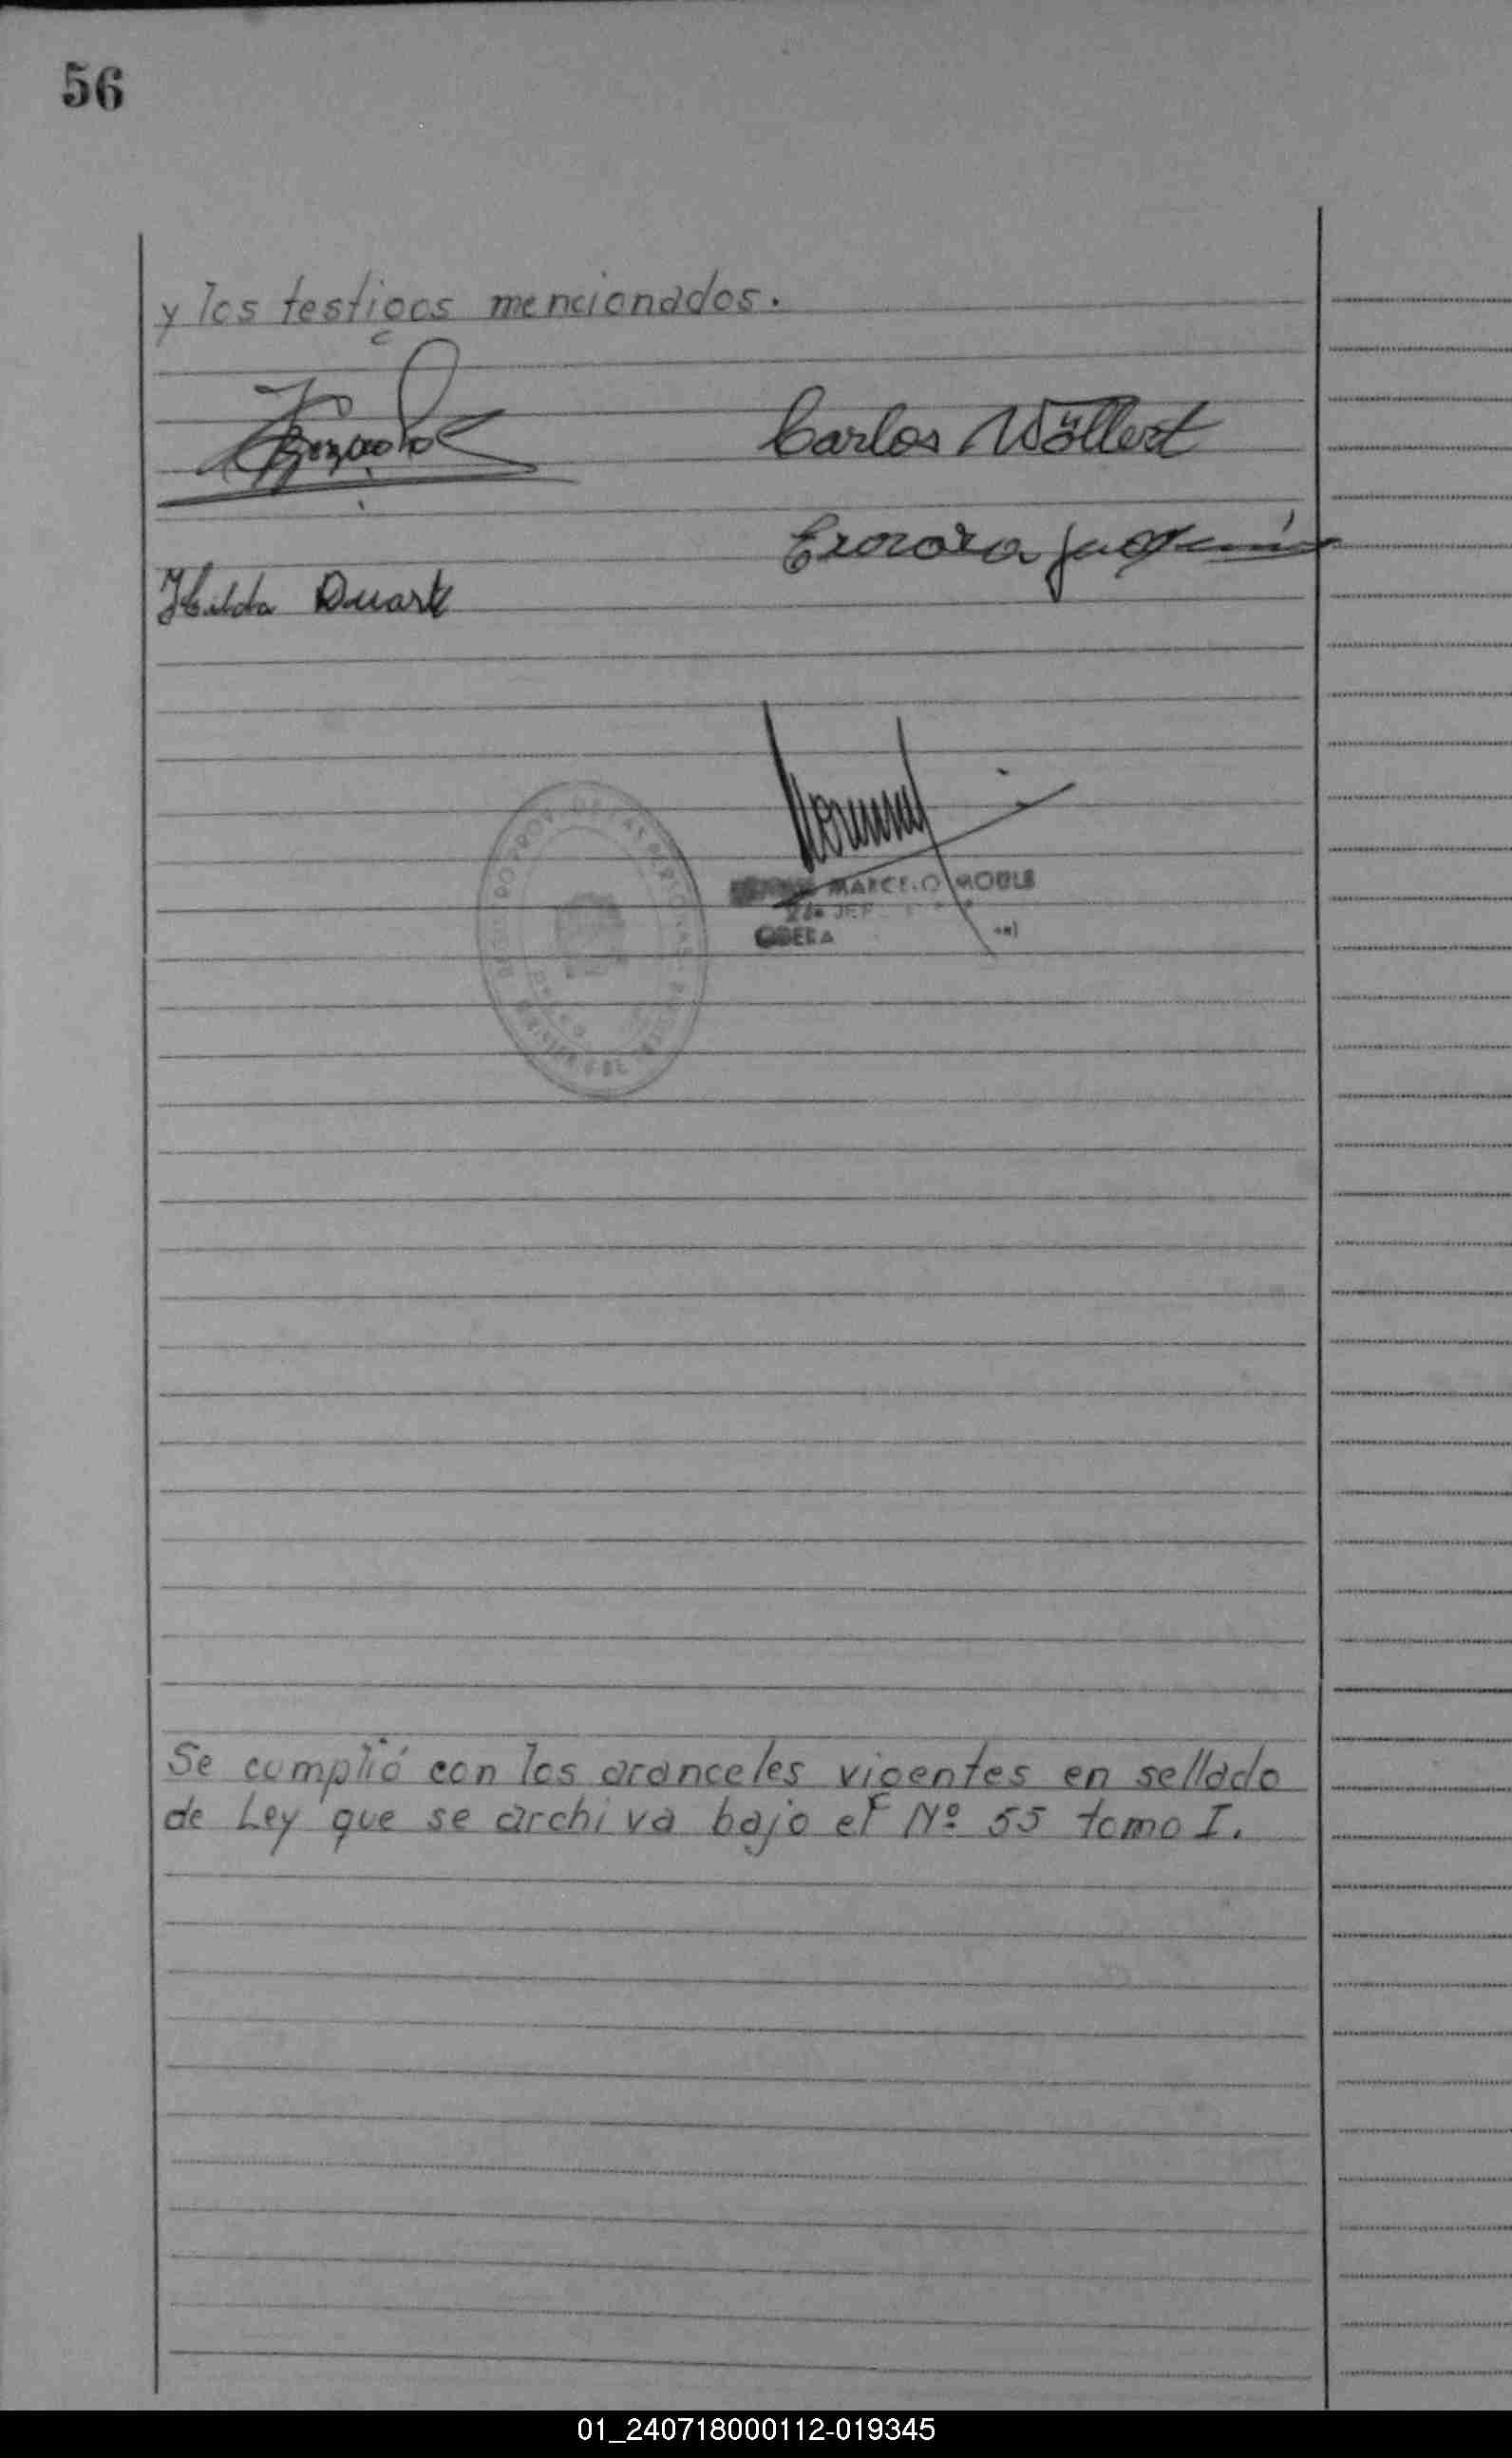 56
y los testigos mencionados.
Carlos Wöllert
Hilda Duarte
MARCELO
OBERA
Se cumplió con los aranceles vigentes en sellado
de Ley que se archiva bajo el Nº 55 tomo I.
01_240718000112-019345